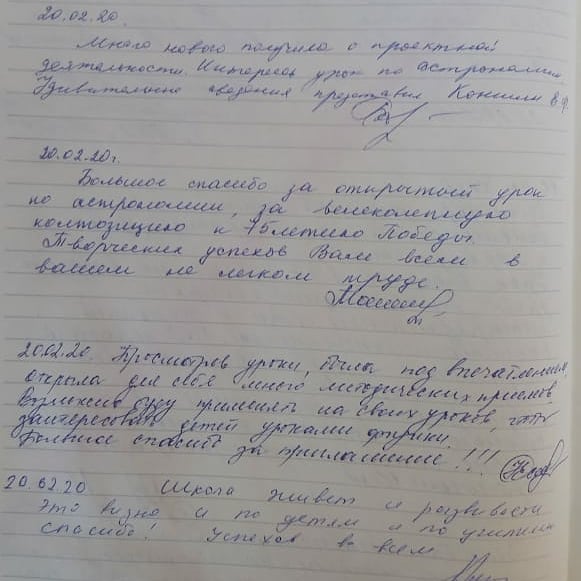 20.02.20.
Много нового получила о проектной
деятельности. Интересен урок по астрономии.
Удивительные сведения представил Коншин В.Ф.
20.02.20г.
Большое спасибо за открытый урок
по астрономии, за великолепную
композицию к 75летию Победы.
Творческих успехов Вам всем в
вашем не легком труде.
20.02.20. Просмотрев уроки, была под впечатлением,
открыла для себя много методических приемов
буду применять на своих уроках, чтоб
заинтересовать детей уроками физики.
Большое спасибо за приглашение!!!
20.02.20 Школа живет и развивается
Это видно и по детям и по учителям
Спасибо! Успехов во всем